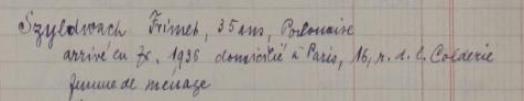 Szyldwach Frimet, 35 ans, Polonaise
arrivé en Fr. 1936 domicilié à Paris, 16, r. d. l. Corderie
femme de ménage